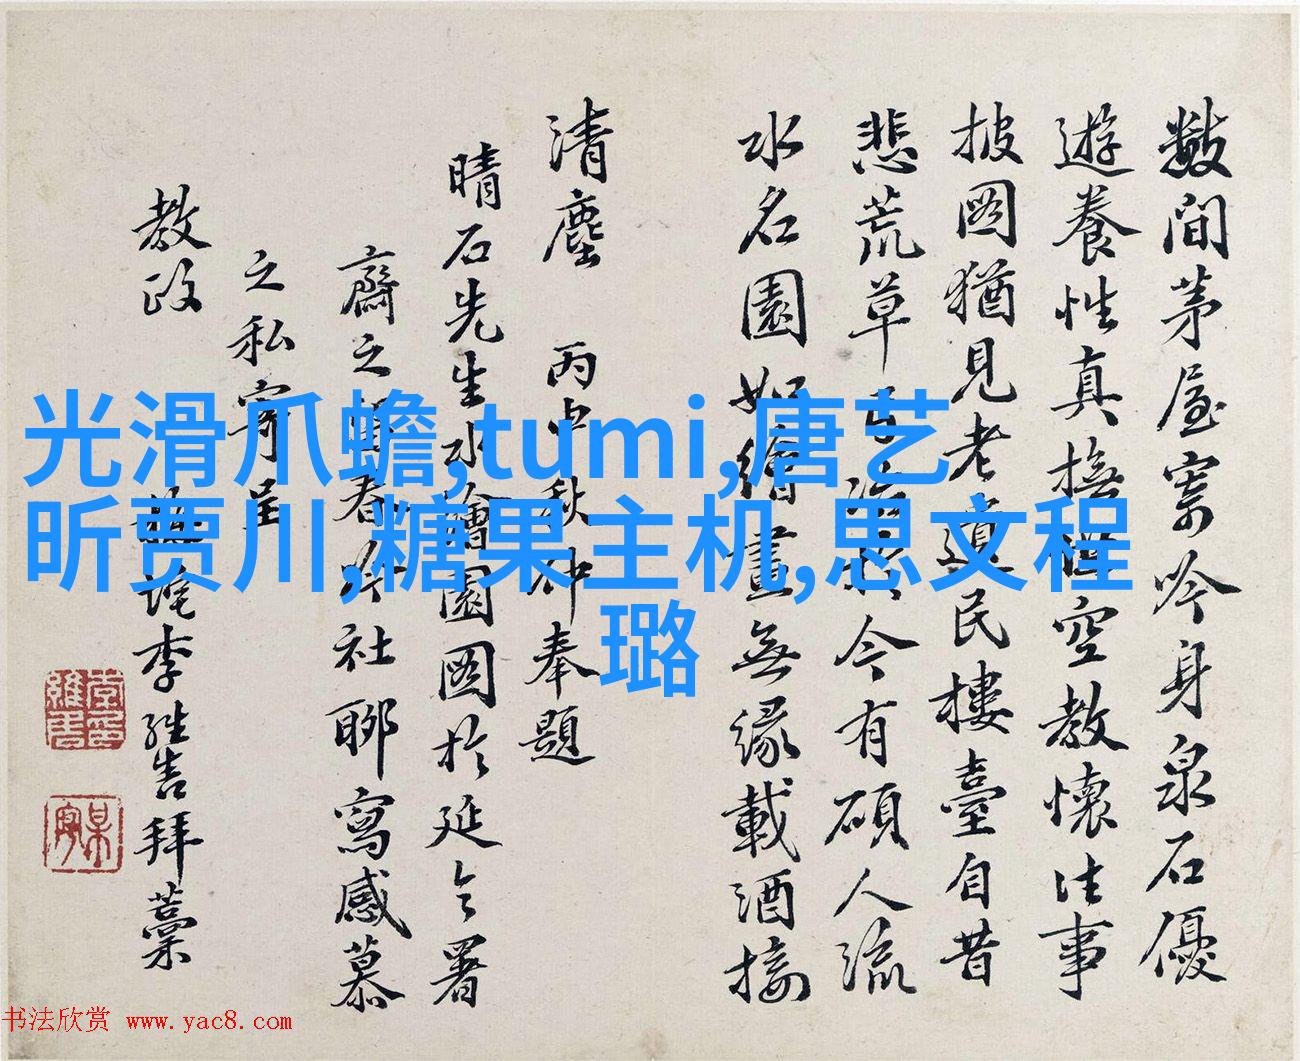 數間茅屋寄吟身泉石優
遊養性真撫世空教懷往事
披圖猶見老遺民樓臺自昔
悲荒草今有碩人流
水名園如繪畫無緣載酒接
清塵 丙秋仲奉題
晴石先生水繪園圖於延令署
齋之春吟社聊寫感慕
之私寄呈
教政
李繼善拜藁
光滑爪蟾,tumi,唐艺
昕贾川,糖果主机,思文程
璐
书法欣赏 www.yac8.com